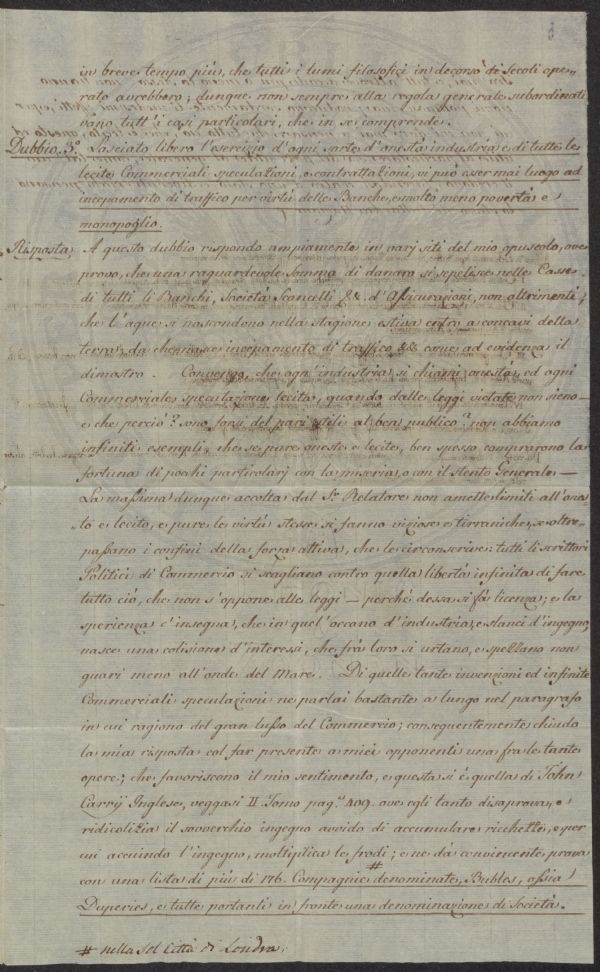 in breve tempo più, che tutti i lumi filosofici in decorso di Secoli ope-
rato avrebbero; dunque non sempre alla regola generale subordinati
vano tutt' i casi particolari, che in se comprende.
Dubbio 3.º Lasciato libero l'esercizio d'ogni sorte d'onesta industria e di tutte le
lecite Commerciali speculazioni, e contrattazioni, vi può esser mai luogo ad
incepamento di traffico per virtù delle Banche, e molto meno povertà e
monopoglio.
Risposta A questo dubbio rispondo ampiamente in varj siti del mio opuscolo, ove
provo, che una raguardevole somma di danaro si sepelisce nelle Casse
di tutti li Banchi, Società Sconcelli &&. d'Assicurazioni, non altrimenti,
che l'aque si nascondono nella stagione estiva entro a concavi della
terra, da che nasce incepamento di traffico && come ad evidenza il
dimostro. Convengo, che ogn' industria si chiami onesta, ed ogni
Commerciale speculazione lecita, quando dalle leggi vietate non sieno
e che perciò? sono forsi del pari utili al ben publico? non abbiamo
infiniti esempli, che se pure oneste e lecite, ben spesso comprarono la
fortuna di pochi particolarj con la miseria, o con il stento Generale —
La massima dunque accolta dal Sr. Relatore non amette limiti all'ones
to e lecito, e pure le virtù stesse si fanno viziose e tirraniche, se oltre-
passano i confini della forza attiva, che le circonscrive: tutti li scrittori
Politici di Commercio si scagliano contro quella libertà infinita di fare
tutto ciò, che non s'oppone alle leggi — perché dessa si fà licenza; e la
sperienza c'insegna, che in quel' occano d'industria, e slanci d'ingegno,
nasce una colisione d'interessi, che frà loro si urtano, e spezzano non
guari meno all'onde del Mare. Di quelle tante invenzioni ed infinite
Commerciali speculazioni ne parlai bastante a lungo nel paragrafo
in cui ragiono del gran lusso del Commercio; conseguentemente chiudo
la mia risposta col far presente a miei opponenti una fra le tante
opere; che favoriscono il mio sentimento, e questa si è quella di John
Carrÿ Inglese, veggasi II. Tomo pag.ª 409. ove egli tanto disaprova, e
ridicolizia il soverchio ingegno avvido di accumulare ricchezze, e per
cui acuindo l'ingegno, moltiplica le frodi; e ne dà conveniente prova
con una lista di più di 176. Compagnie # denominate, Bubles, ossia
Duperies, e tutte portanti in fronte una denominazione di Società.
# nella sol Città di Londra.